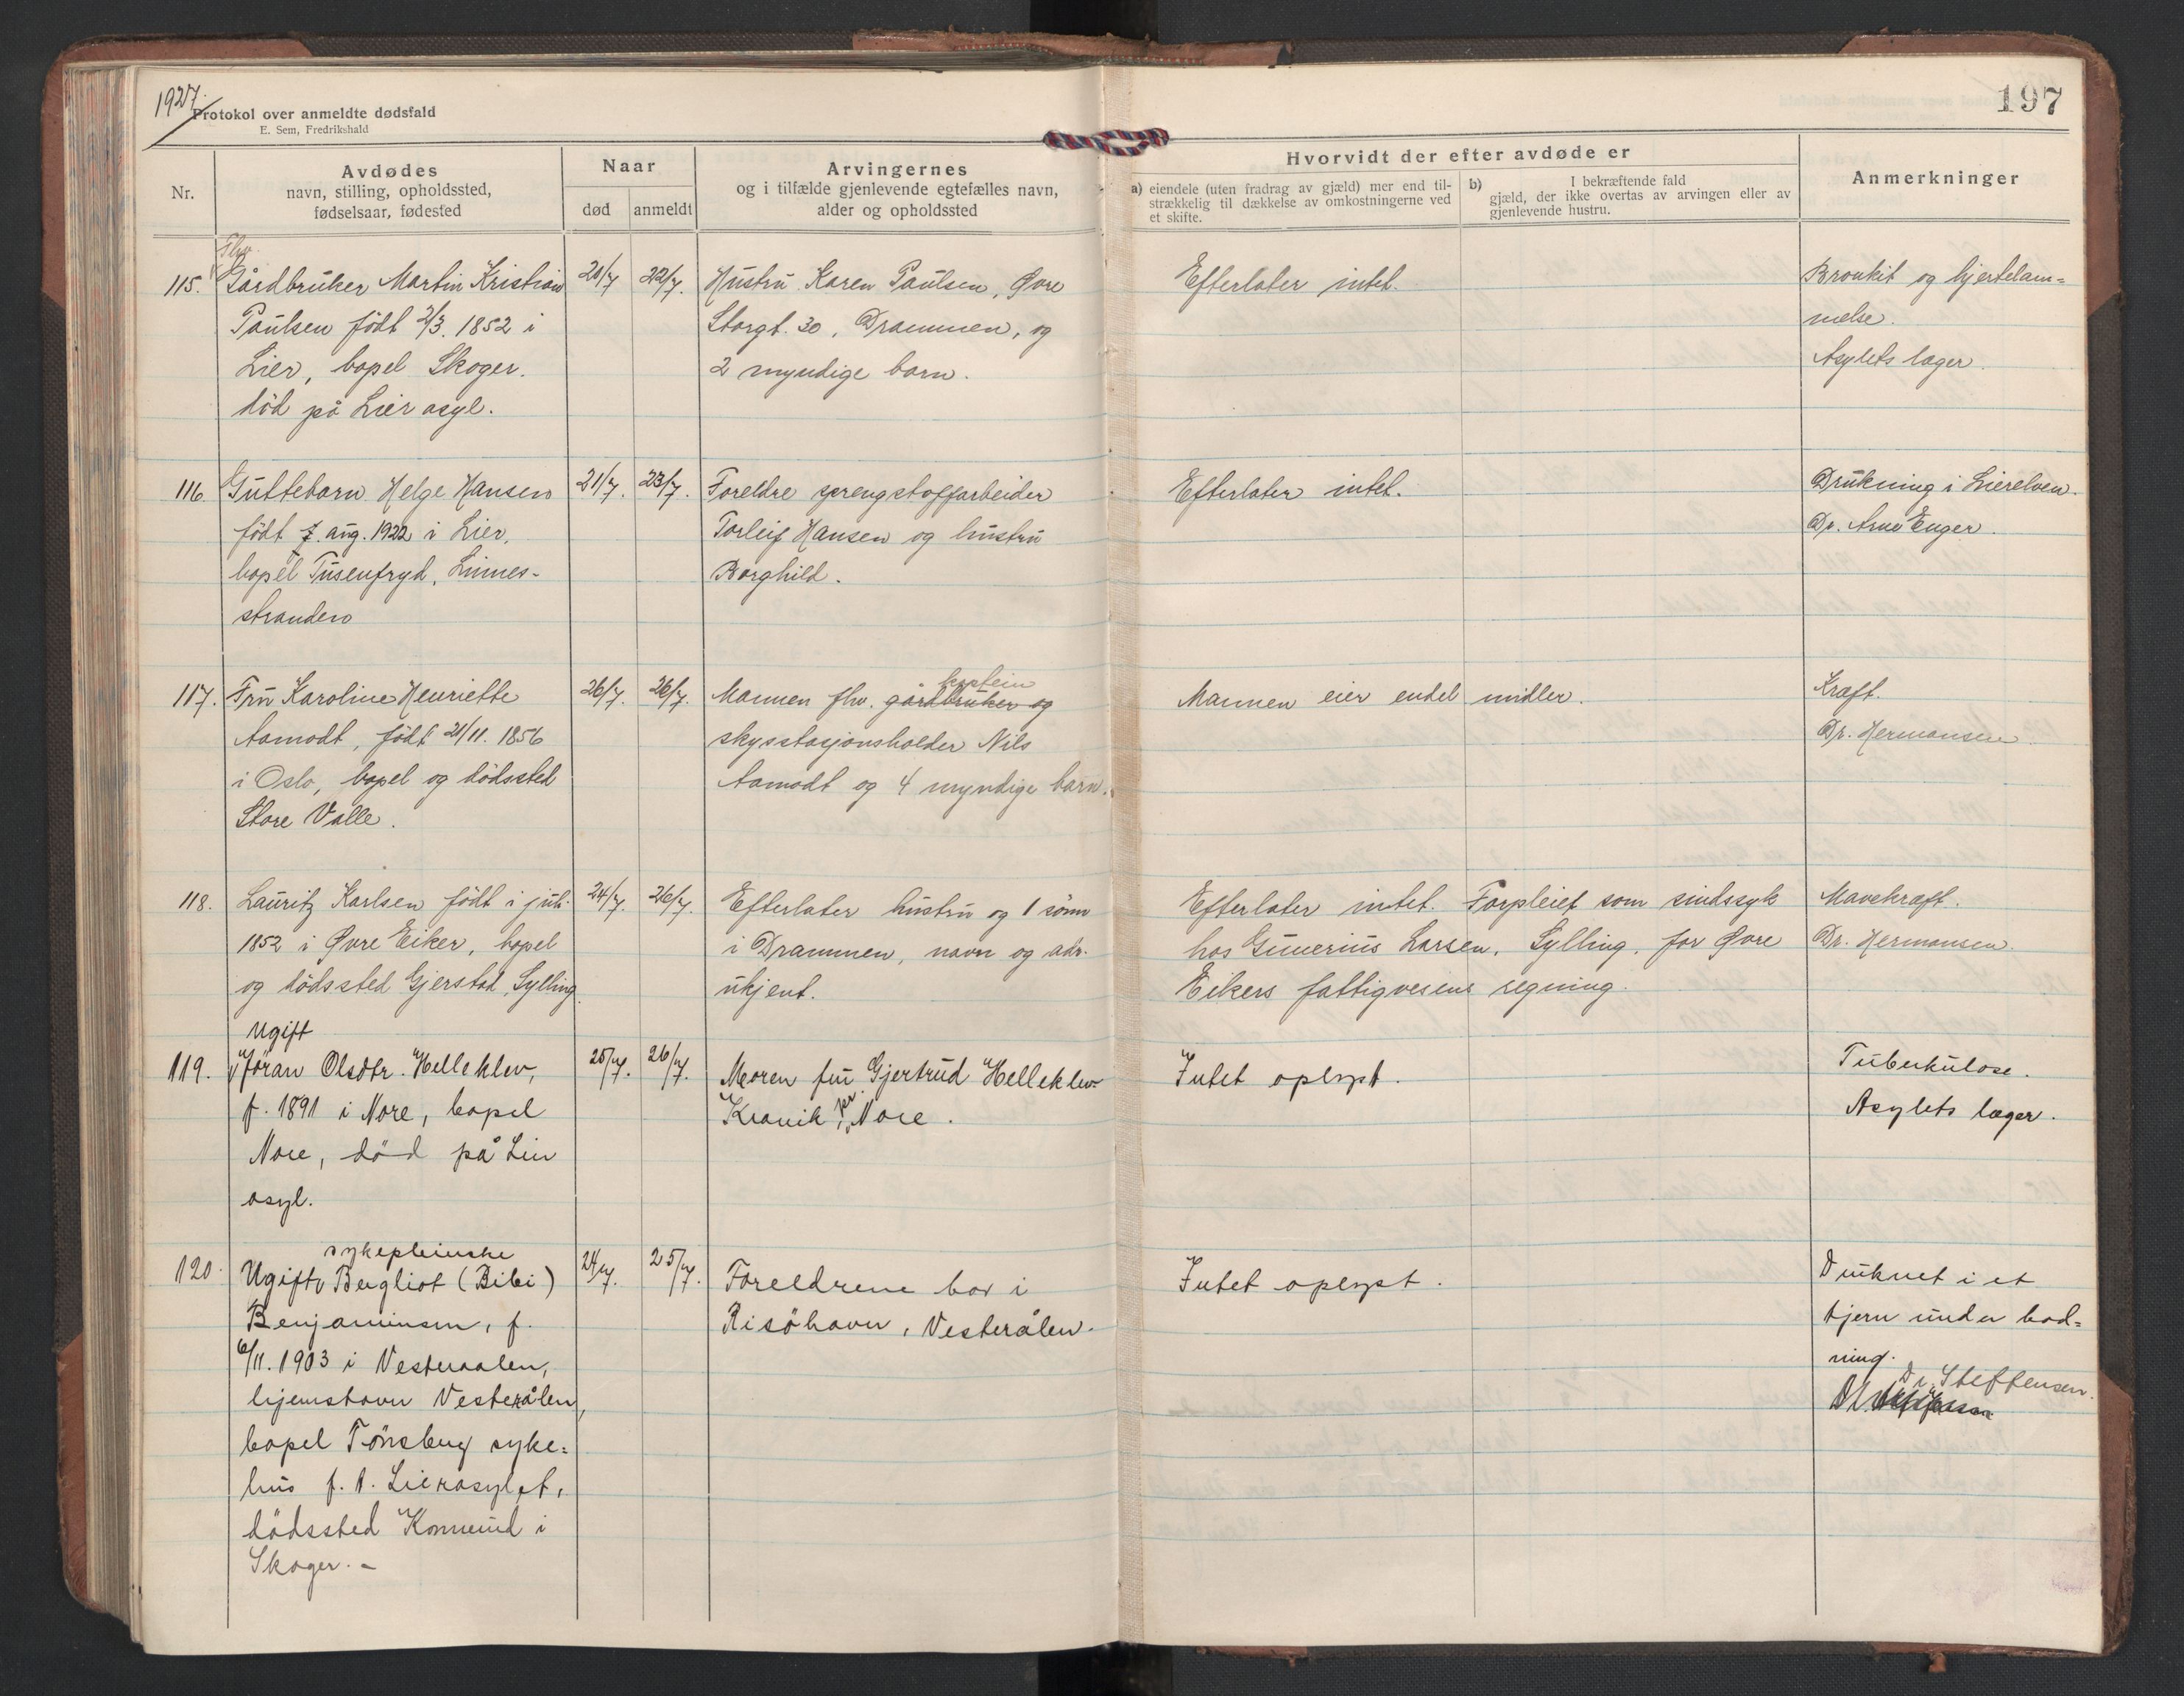 1927.
Protokol over anmeldte dødsfald
E. Sem, Fredrikshald
197
Nr.
Avdødes
navn, stilling, opholdssted,
fødselsaar, fødested
Naar
død
anmeldt
Arvingernes
og i tilfælde gjenlevende egtefælles navn,
alder og opholdssted
Hvorvidt der efter avdøde er
a) eiendele (uten fradrag av gjæld) mer end til-
strækkelig til dækkelse av omkostningerne ved
et skifte.
b) I bekræftende fald
gjæld, der ikke overtas av arvingen eller av
gjenlevende hustru.
Anmerkninger
115.
Fhv.
Gårdbruker Martin Kristian
Paulsen født 2/3. 1852 i
Lier, bopel Skoger.
död på Lier asyl.
20/7
22/7.
Hustru Karen Paulsen, Øvre
Storgt. 30, Drammen, og
2 myndige barn.
Efterlater intet.
Bronkit og hjertelam=
melse.
Asylets læger.
116.
Guttebarn Helge Hansen
født 7. aug. 1922 i Lier,
bopel Tusenfryd, Linnes-
stranden
21/7.
23/7.
Foreldre sprengstoffarbeider
Torleif Hansen og hustru
Borghild.
Efterlater intet.
Drukning i Lierelven.
Dr. Arne Enger.
117.
Fru Karoline Henriette
Aamodt, født 21/11. 1856
i Oslo, bopel og dödssted
Store Valle.
26/7.
26/7.
kaptein
Mannen fhv. gårdbruker og
skysstasjonsholder Nils
Aamodt og 4 myndige barn.
Mannen eier endel midler.
Kræft.
Dr. Hermansen
118.
Lauritz Karlsen født i juli
1852 i Øvre Eiker, bopel
og dödssted Gjerstad, Sylling.
24/7.
26/7.
Efterlater hustru og 1 sönn
i Drammen, navn og adr.
ukjent.
Efterlater intet. Forpleiet som sindssyk
hos Gunerius Larsen, Sylling, for Øvre
Eikers fattigvesens regning.
Mavekræft.
Dr. Hermansen.
119.
Ugift
Jöran Olsdtr. Helleklev,
f. 1891 i Nore, bopel
Nore, död på Lier
asyl.
25/7.
26/7.
Moren fru Gjertrud Helleklev
Kravik pr. Nore.
Intet oplyst.
Tuberkulose.
Asylets læger.
120.
sykepleierske
Ugift Bergliot (Bibi)
Benjaminsen, f.
6/11. 1903 i Vesteraalen,
hjemstavn Vesterålen,
bopel Tönsberg syke=
hus f. t. Lierasylet,
dödssted Konnerud i
Skoger. -
24/7.
25/7.
Foreldrene bor i
Risöhavn, Vesterålen.
Intet oplyst.
Druknet i et
tjern under bad=
ning.
Dr. Steffensen.